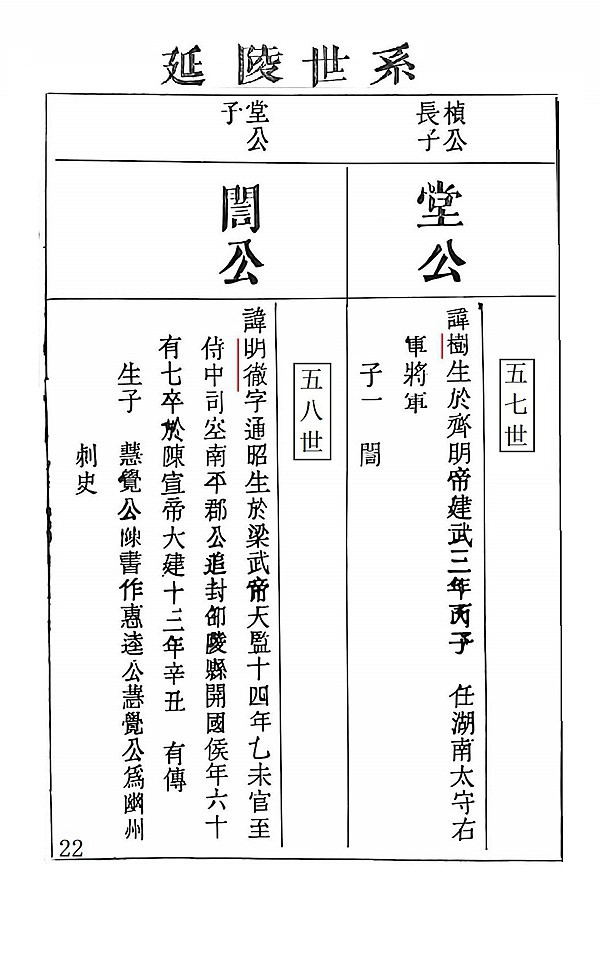 延陵世系
楨公
長子
堂公
五七世
諱樹生於齊明帝建武三年丙子 任湖南太守右
軍將軍
子一 誾
堂公
子
誾公
五八世
諱明徹字通昭生於梁武帝天監十四年乙未官至
侍中司空南平郡公追封邵陵縣開國侯年六十
有七卒於陳宣帝大建十三年辛丑 有傳
生子 慧覺公陳書作惠逵公慧覺公爲豳州
刺史
22